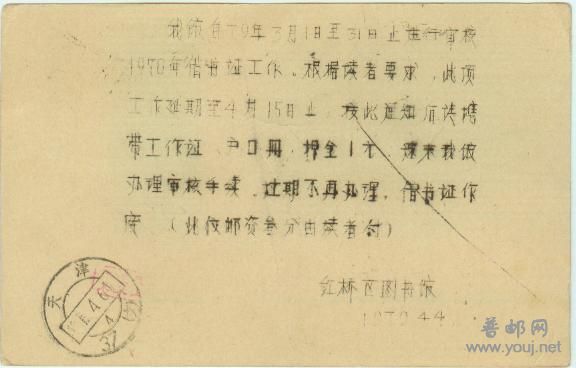 我馆自79年3月1日至31日止进行审核
1978年借书证工作。根据读者要求，此项
工作延期至4月15日止，接此通知后请携
带工作证、户口册、押金1元，速来我馆
办理审核手续，过期不再办理，借书证作
废。（此仅邮资叁分由读者付）
红桥区图书馆
1979.4.4
天津
普邮网
www.youj.net